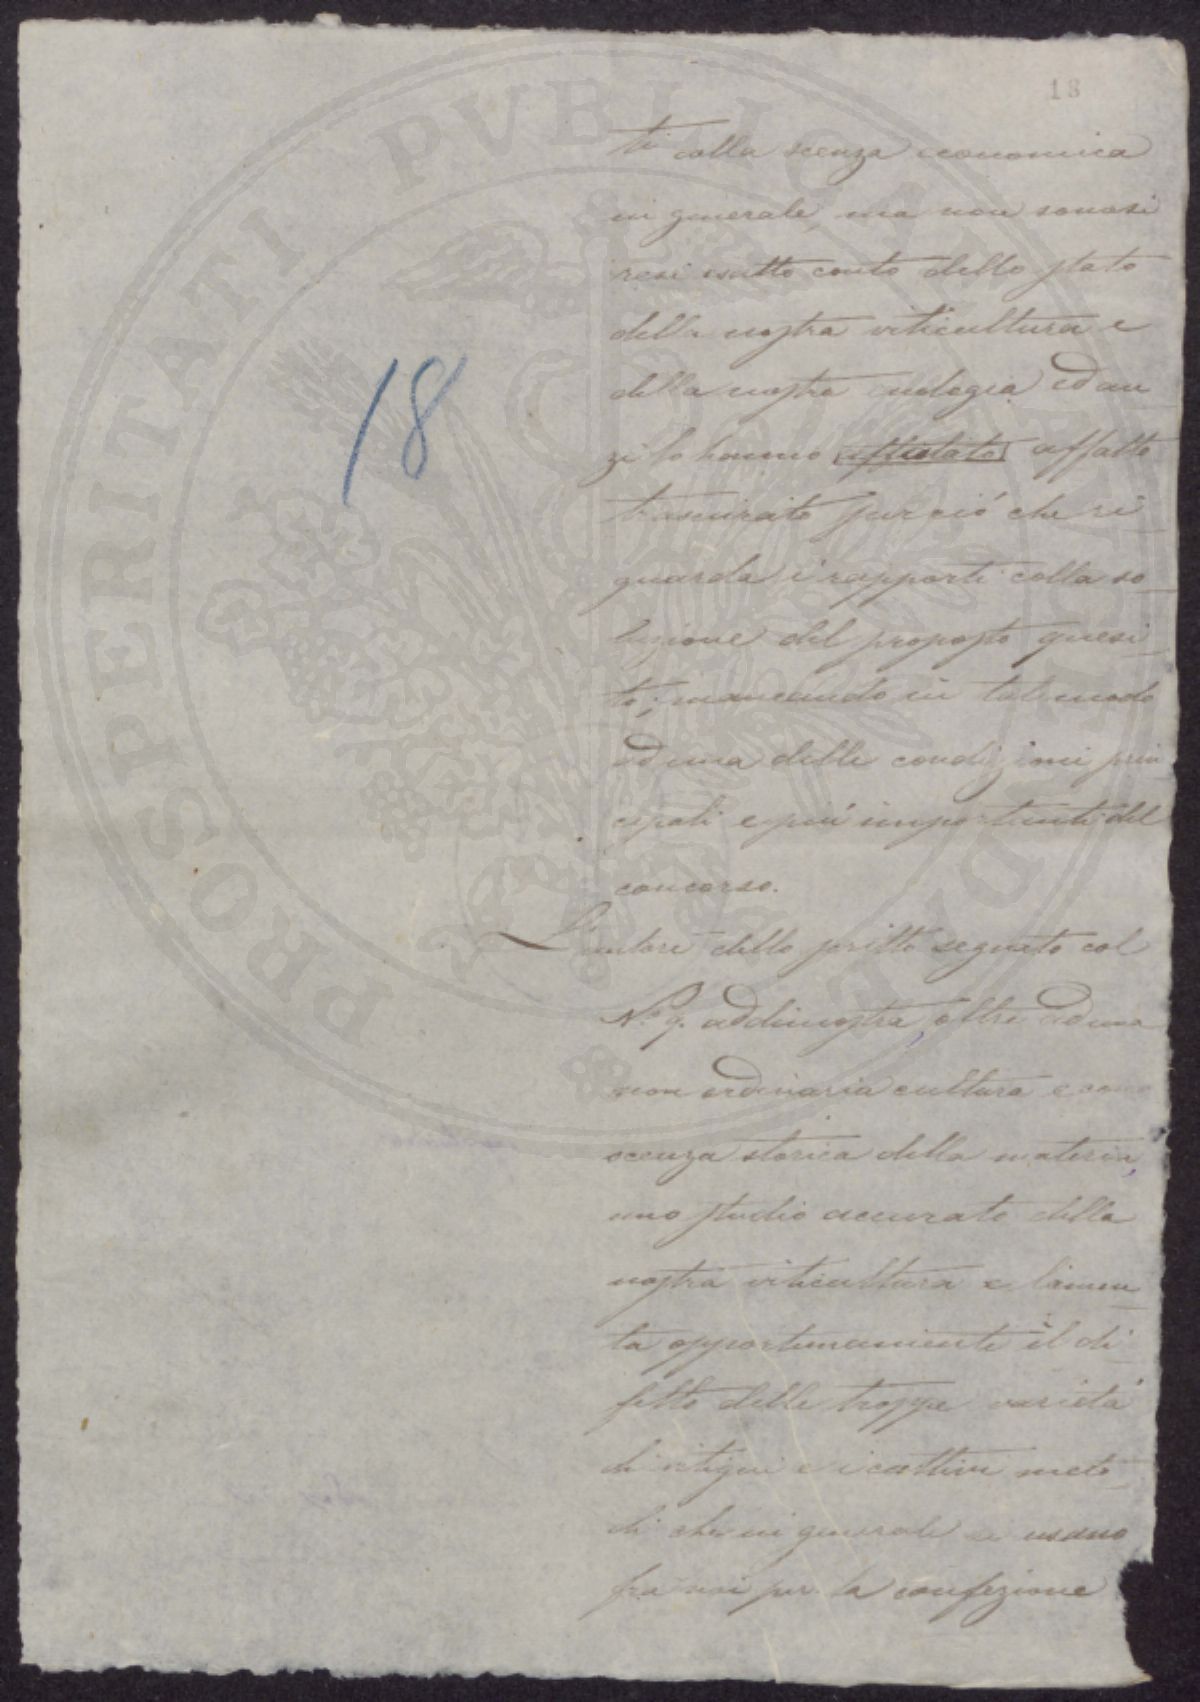 18
ti colla scenza economica
in generale, ma non sonosi
resi esatto conto dello stato
della nostra viticultura e
della nostra enologia ed an
zi lo hanno affatto
trascurato per ciò che ri
guarda i rapporti colla so
luzione del proposto quesi
to; mancando in tal modo
ad una delle condizioni prin
cipali e più importanti del
concorso.
L'autore dello scritto segnato col
N.º 9. addimostra, oltre ad una
non ordinaria cultura e cono
scenza storica della materia,
uno studio accurato della
nostra viticultura e lamen
ta opportunamente il di
fetto delle troppe varietà
di vitigni e i cattivi meto
di che in generale si usano
fra noi per la confezione
18
PROSPERITATI PVBLICAE AVGENDAE